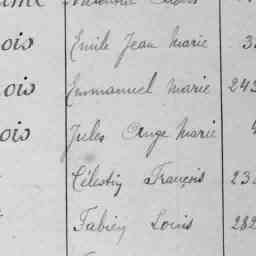 ois Emile Jean Marie
ois Emmanuel Marie 243
ois Jules Ange Marie
Célestin François 23
Fabien Louis 282